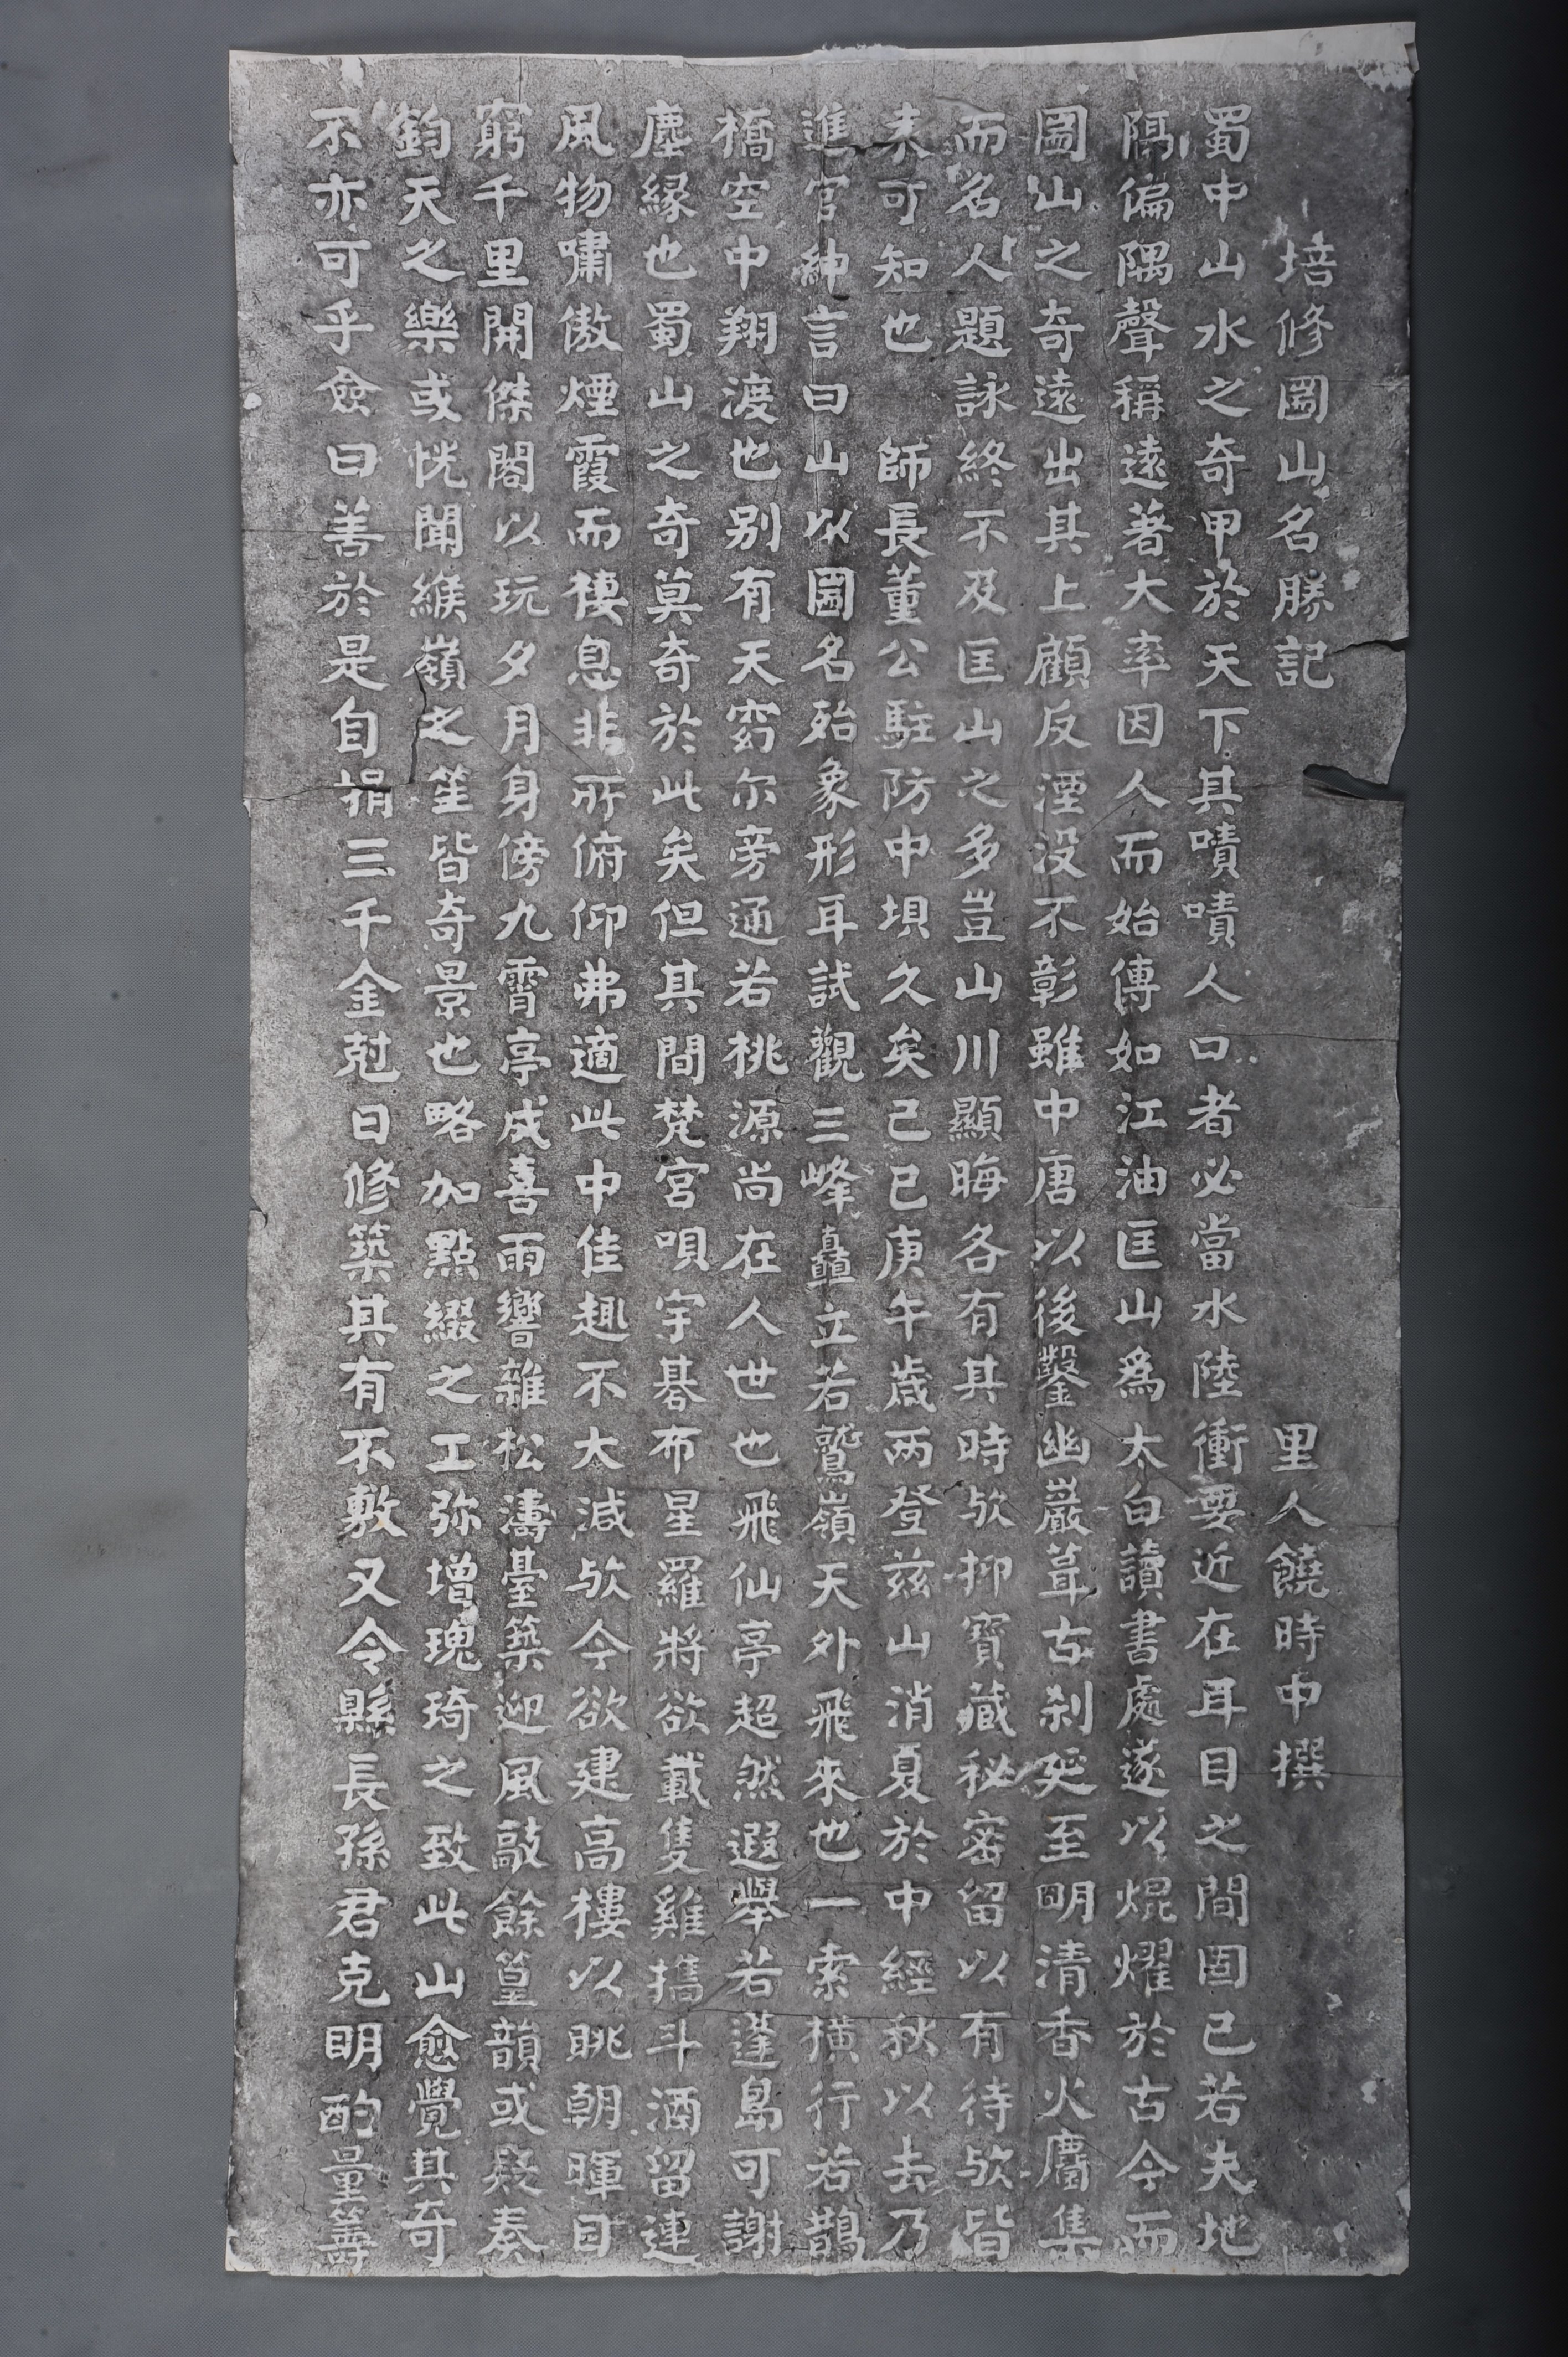 培修圌山名勝記　里人饒時中撰
蜀中山水之奇甲於天下其嘖嘖人口者必當水陸衝要近在耳目之間固已若夫地
隔偏隅聲稱遠著大率因人而始傳如江油匡山爲太白讀書處遂以焜燿於古今而
圌山之奇遠出其上顧反湮没不彰雖中唐以後鑿幽巖葺古刹延至明清香火麕集
而名人題詠終不及匡山之多豈山川顯晦各有其時欤抑寶藏秘密留以有待欤皆
未可知也　師長董公駐防中垻久矣己巳庚午歲两登兹山消夏於中經秋以去乃
進官紳言曰山以圌名殆象形耳試觀三峰矗立若鷲嶺天外飛來也一索横行若鵲
橋空中翔渡也别有天窈尔旁通若桃源尚在人世也飛仙亭超然遐舉若蓬島可謝
塵縁也蜀山之奇莫奇於此矣但其間梵宮唄宇碁布星羅將欲載隻雞攜斗酒留連
風物嘯傲煙霞而棲息非所俯仰弗適此中佳趣不大減欤今欲建高樓以眺朝暉目
窮千里開傑閣以玩夕月身傍九霄亭成喜雨響雜松濤臺築迎風敲餘篁韻或疑奏
鈞天之樂或恍聞緱嶺之笙皆奇景也略加點綴之工弥增瑰琦之致此山愈覺其奇
不亦可乎僉曰善於是自捐三千金尅日修築其有不敷又令縣長孫君克明酌量籌